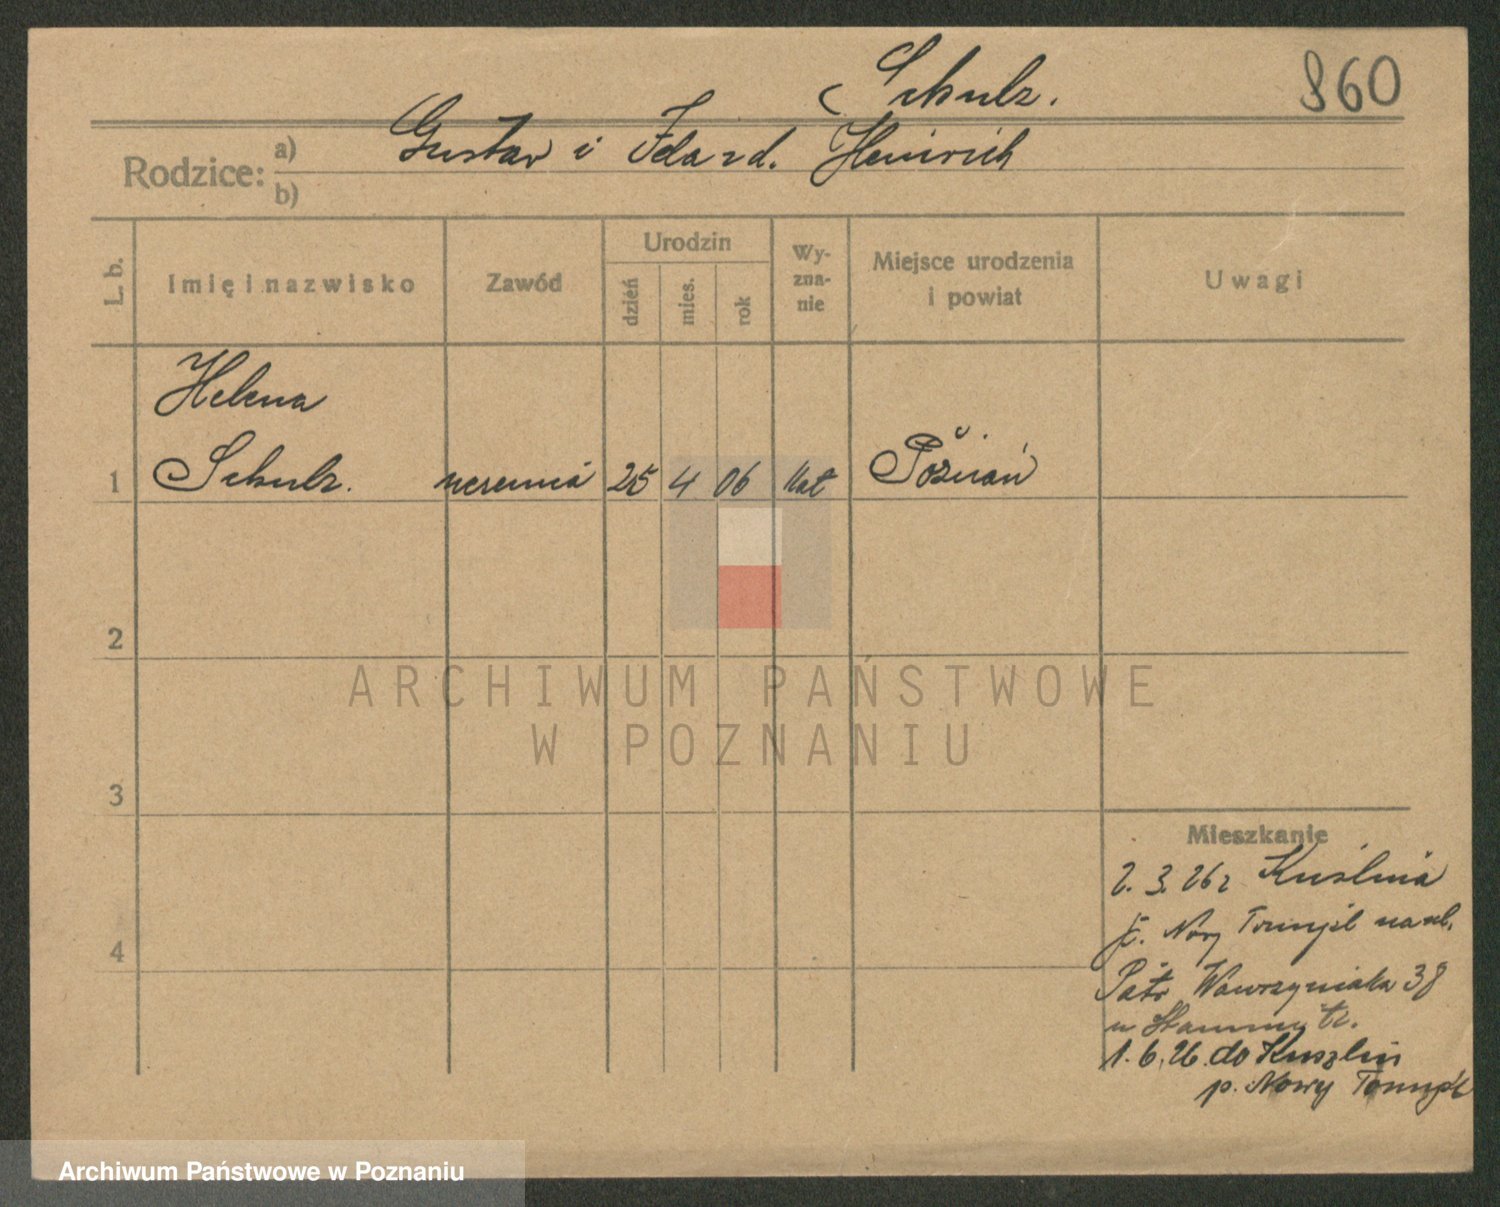 Schulz.
860
Rodzice:
a) Gustav i Ida z d. Heinrich
b)
L. b.
Imię i nazwisko
Zawód
Urodzin
dzień
mies.
rok
Wy-
zna-
nie
Miejsce urodzenia
i powiat
Uwagi
Helena
1 Schulz. uczennica 25 4 06 kat Poznań
2
3
4
Mieszkanie
2. 3. 26 z Kuślina
p. Nowy Tomyśl na ul.
Patr Wawrzyniaka 38
u
1. 6. 26. do Kuszlin
p. Nowy Tomyśl
ARCHIWUM PAŃSTWOWE
W POZNANIU
Archiwum Państwowe w Poznaniu